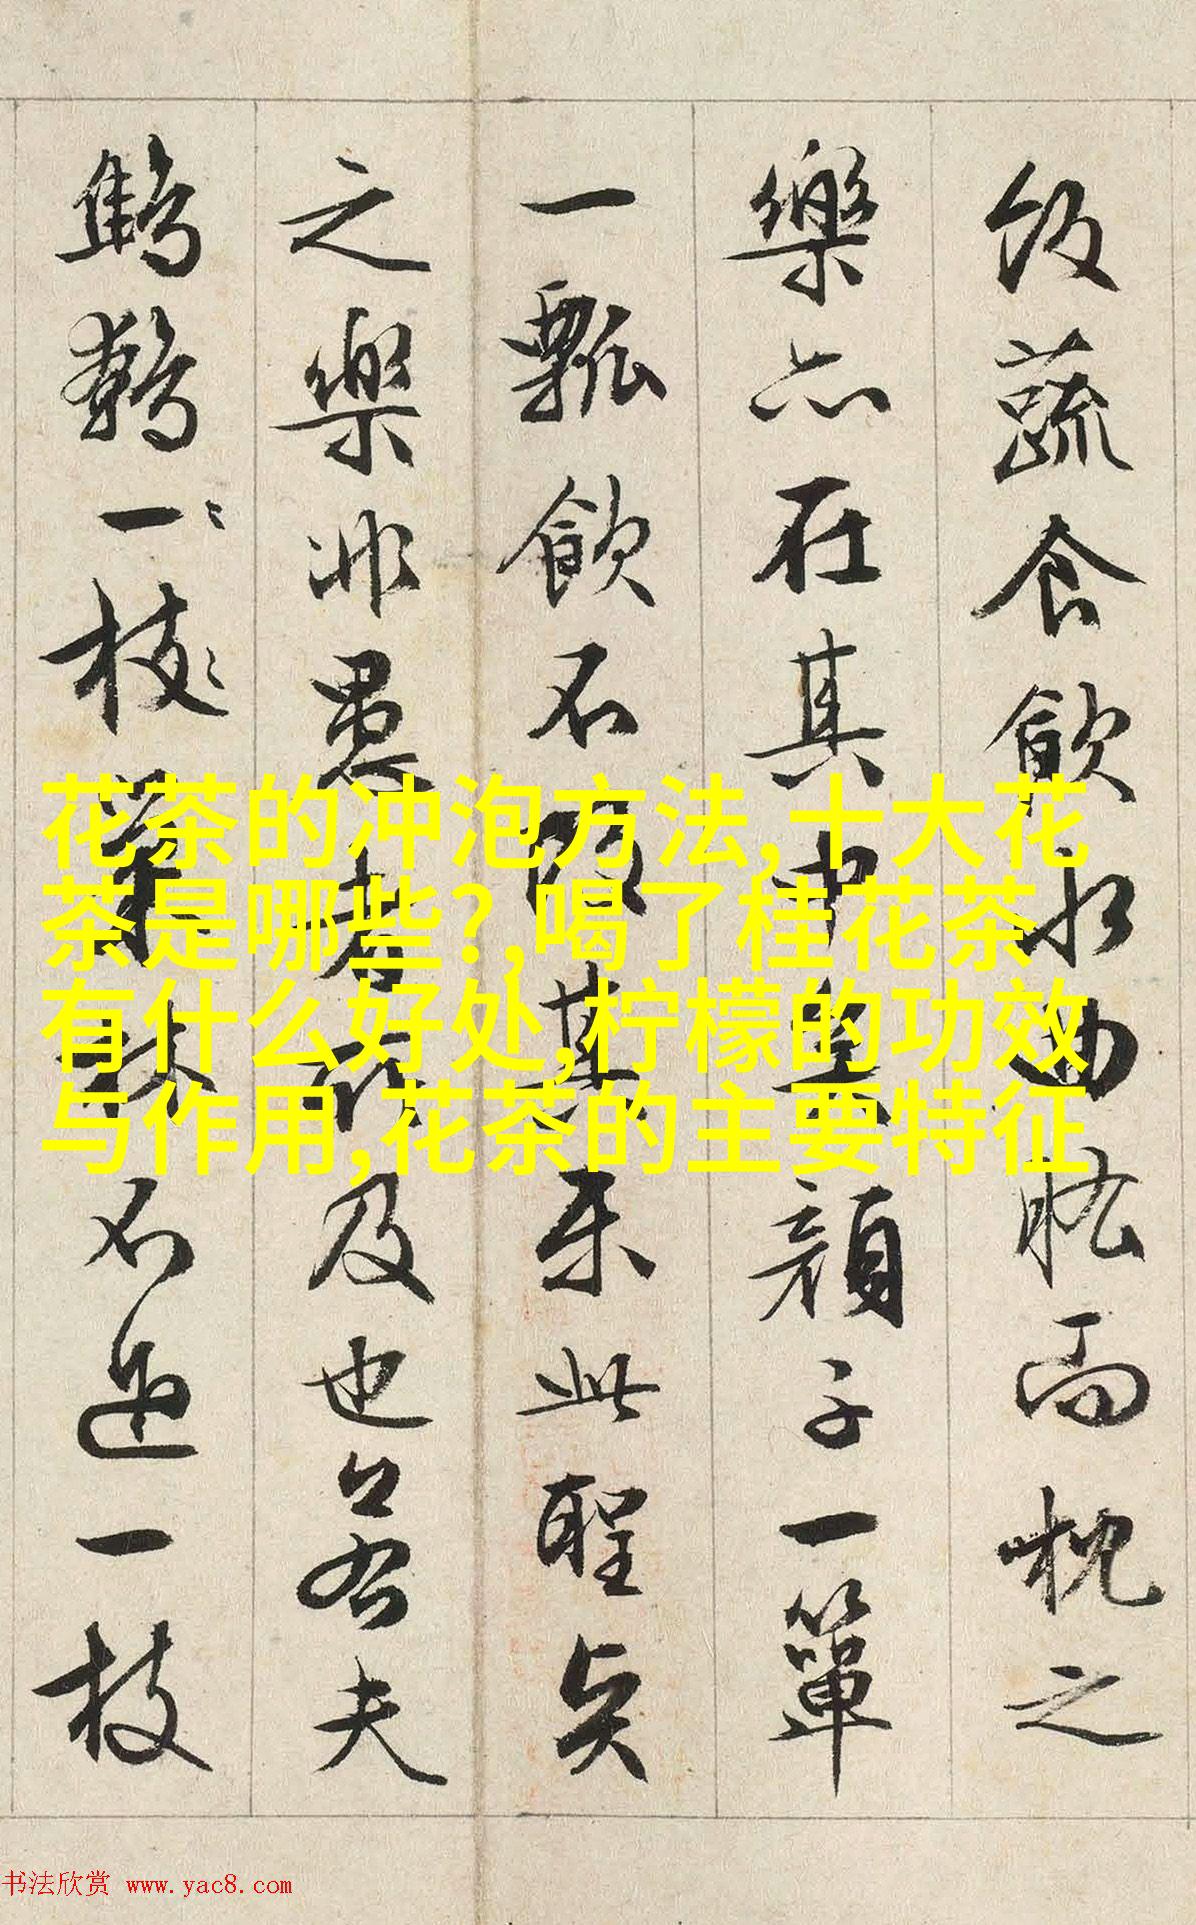 飯蔬食飲水曲肱而枕之
樂亦在其中矣顏子一簞
一瓢飲不改其樂此聖賢
之樂非愚者所及也若夫
鷦鷯一枝巢林不過一枝
花茶的冲泡方法,十大花
茶是哪些?,喝了桂花茶
有什么好处,柠檬的功效
与作用,花茶的主要特征
书法欣赏 www.yac8.com